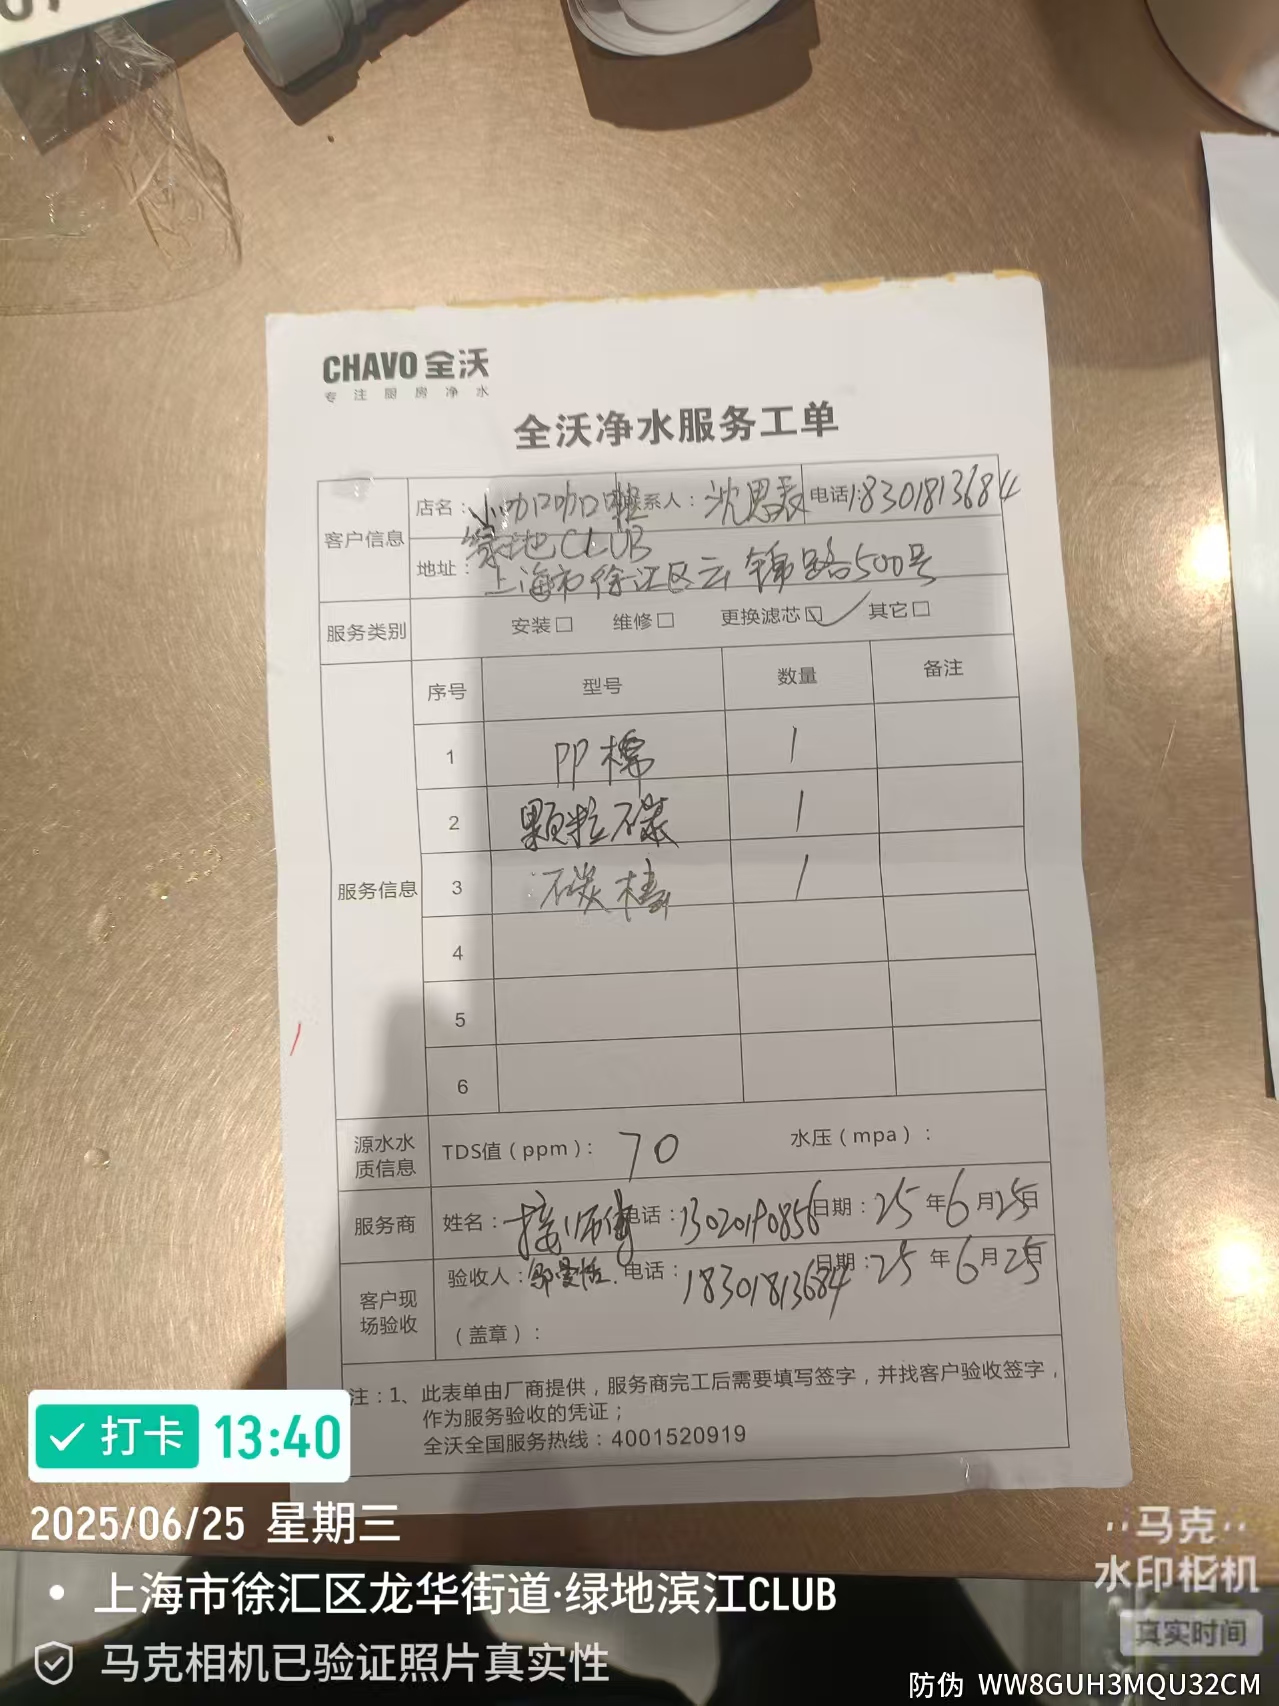 CHAVO 全沃
专注厨房净水
全沃净水服务工单
客户信息
店名：小咖咖啡 联系人：沈思 电话：18301813684
绿地CLUB
地址：上海市徐汇区云锦路500号
服务类别 安装□ 维修□ 更换滤芯☑ 其它□
服务信息
序号 型号 数量 备注
1 PP棉 1
2 颗粒碳 1
3 碳棒 1
4
5
6
源水水质信息 TDS值（ppm）：70 水压（mpa）：
服务商 姓名：师傅 电话：13020190856 日期：25年6月25日
客户现场验收 验收人：邹曼恬 电话：18301813684 日期：25年6月25日
（盖章）：
注：1、此表单由厂商提供，服务商完工后需要填写签字，并找客户验收签字，
作为服务验收的凭证；
全沃全国服务热线：4001520919
打卡 13:40
2025/06/25 星期三
上海市徐汇区龙华街道·绿地滨江CLUB
马克相机已验证照片真实性
马克
水印相机
真实时间
防伪 WW8GUH3MQU32CM